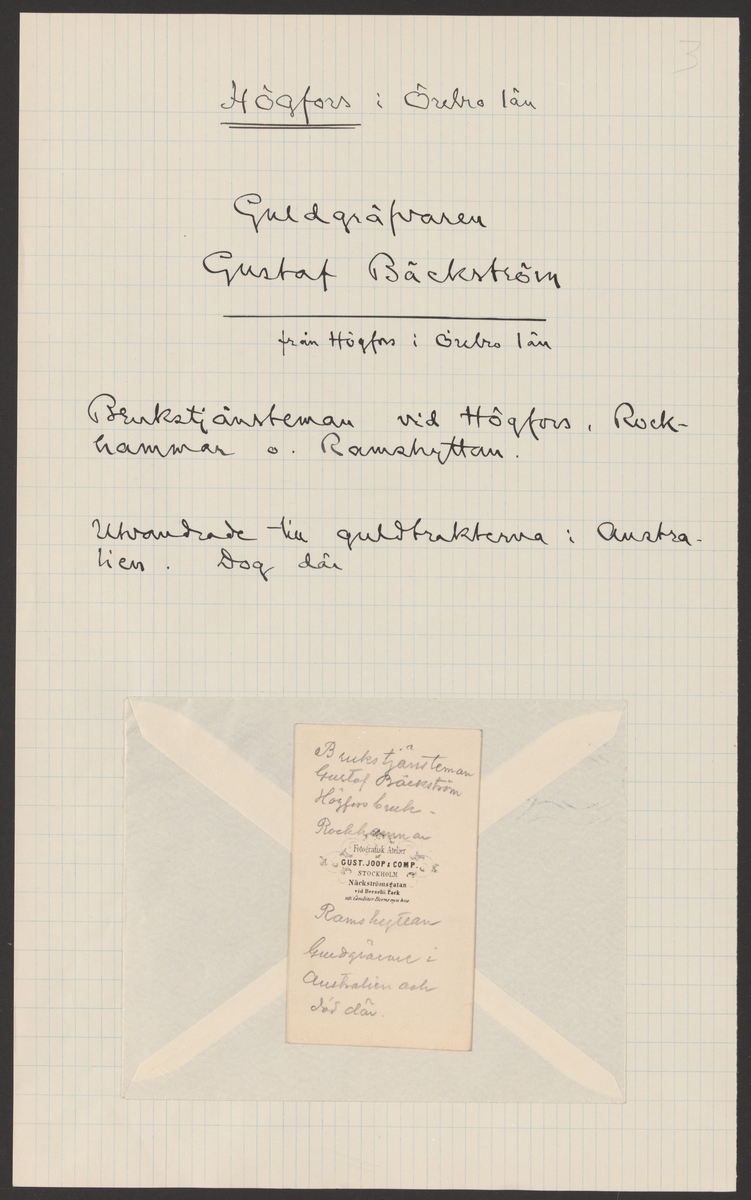 3
Högfors i Örebro län
Guldgräfvaren
Gustaf Bäckström
från Högfors i Örebro län
Brukstjänsteman vid Högfors, Rock-
hammar o. Ramshyttan.
Utvandrade till guldtrakterna i Austra-
lien. Dog där
Brukstjänsteman
Gustaf Bäckström
Högfors bruk -
Rockhammar
Fotografisk Atelier
af
GUST. JOOP & COMP.
STOCKHOLM
Näckströmsgatan
vid Berzelii Park
Ramshyttan
Guldgräfvare i
Australien och
död där.